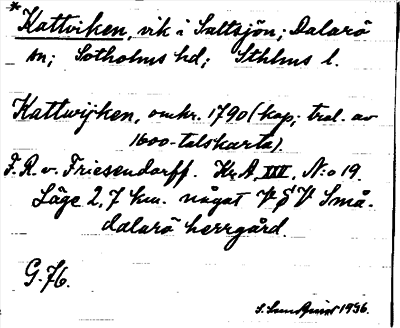 * Kattviken, vik i Saltsjön; Dalarö
sn; Sotholms hd; Sthlms l.
Kattwijken, omkr. 1790 (kop; trol. av
1600-talskarta).
F. R. v. Friesendorff. Kr. A. XIII, N:o 19.
Läge 2,7 km. något V g V Små-
dalarö herrgård.
G. 76.
S. Lundquist 1936.